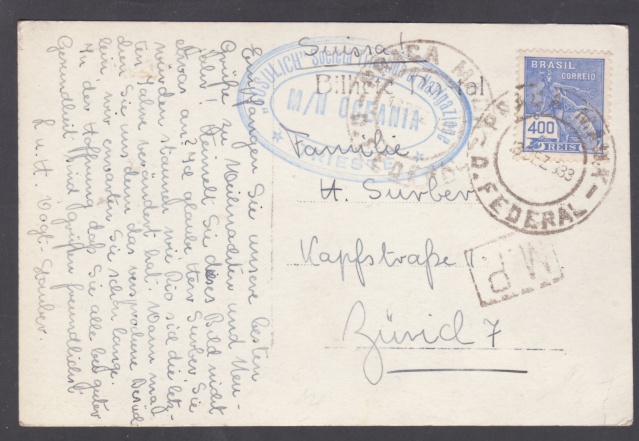 Empfangen Sie unsere besten
Grüße zu Weihnachten und Neu-
jahr! Heimelt Sie dieses Bild nicht
etwas an? Ich glaube Herr Surber, Sie
würden staunen wie Rio sich die letz-
ten Jahre verändert hat. Wann ma-
chen Sie uns denn das versprochene Besüch-
lein, wir erwarten Sie schon lange.
In der Hoffnung, daß Sie alle bei guter
Gesundheit sind grüßen freundlichst
L. u. H. Vogt-
Suissa!
Bilhete Postal
Familie
H. Surber
Kapfstraße
Züric 7
"COSULICH" Società
M/N OCEANIA
TRIESTE
BRASIL
CORREIO
400
REIS
D. FEDERAL
MP